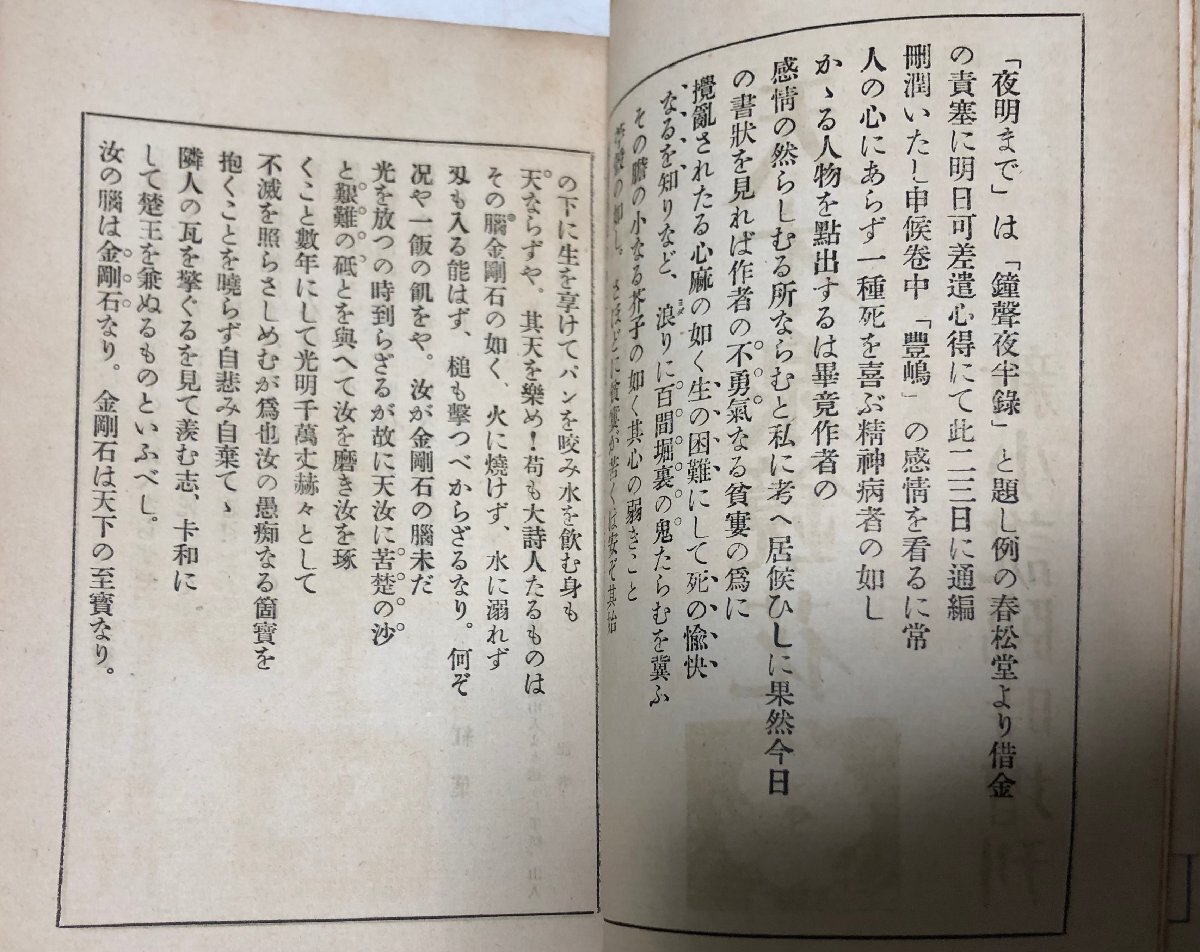 「夜明まで」は「鐘聲夜半錄」と題し例の春松堂より借金
の責塞に明日可差遣心得にて此二三日に通編
刪潤いたし申候卷中「豐嶋」の感情を看るに常
人の心にあらず一種死を喜ぶ精神病者の如し
かゝる人物を點出するは畢竟作者の
感情の然らしむる所ならむと私に考へ居候ひしに果然今日
の書狀を見れば作者の不勇氣なる貧窶の爲に
攪亂されたる心麻の如く生の困難にして死の愉快
なるを知りなど、浪りに百間堀裏の鬼たらむを冀ふ
その膽の小なる芥子の如く其心の弱きこと
苧殼の如し。さほどに貧窶が苦くば安ぞ其始
の下に生を享けてパンを咬み水を飮む身も
天ならずや、其天を樂め！苟も大詩人たるものは
その腦金剛石の如く、火に燒けず、水に溺れず
刄も入る能はず、槌も擊つべからざるなり。何ぞ
况や一飯の飢をや。汝が金剛石の腦未だ
光を放つの時到らざるが故に天汝に苦楚の沙
と艱難の砥とを與へて汝を磨き汝を琢
くこと數年にして光明千萬丈赫々として
不滅を照らさしめむが爲也汝の愚痴なる箇寶を
抱くことを曉らず自悲み自棄てゝ
隣人の瓦を擎ぐるを見て羨む志、卡和に
して楚王を兼ぬるものといふべし。
汝の腦は金剛石なり。金剛石は天下の至寶なり。